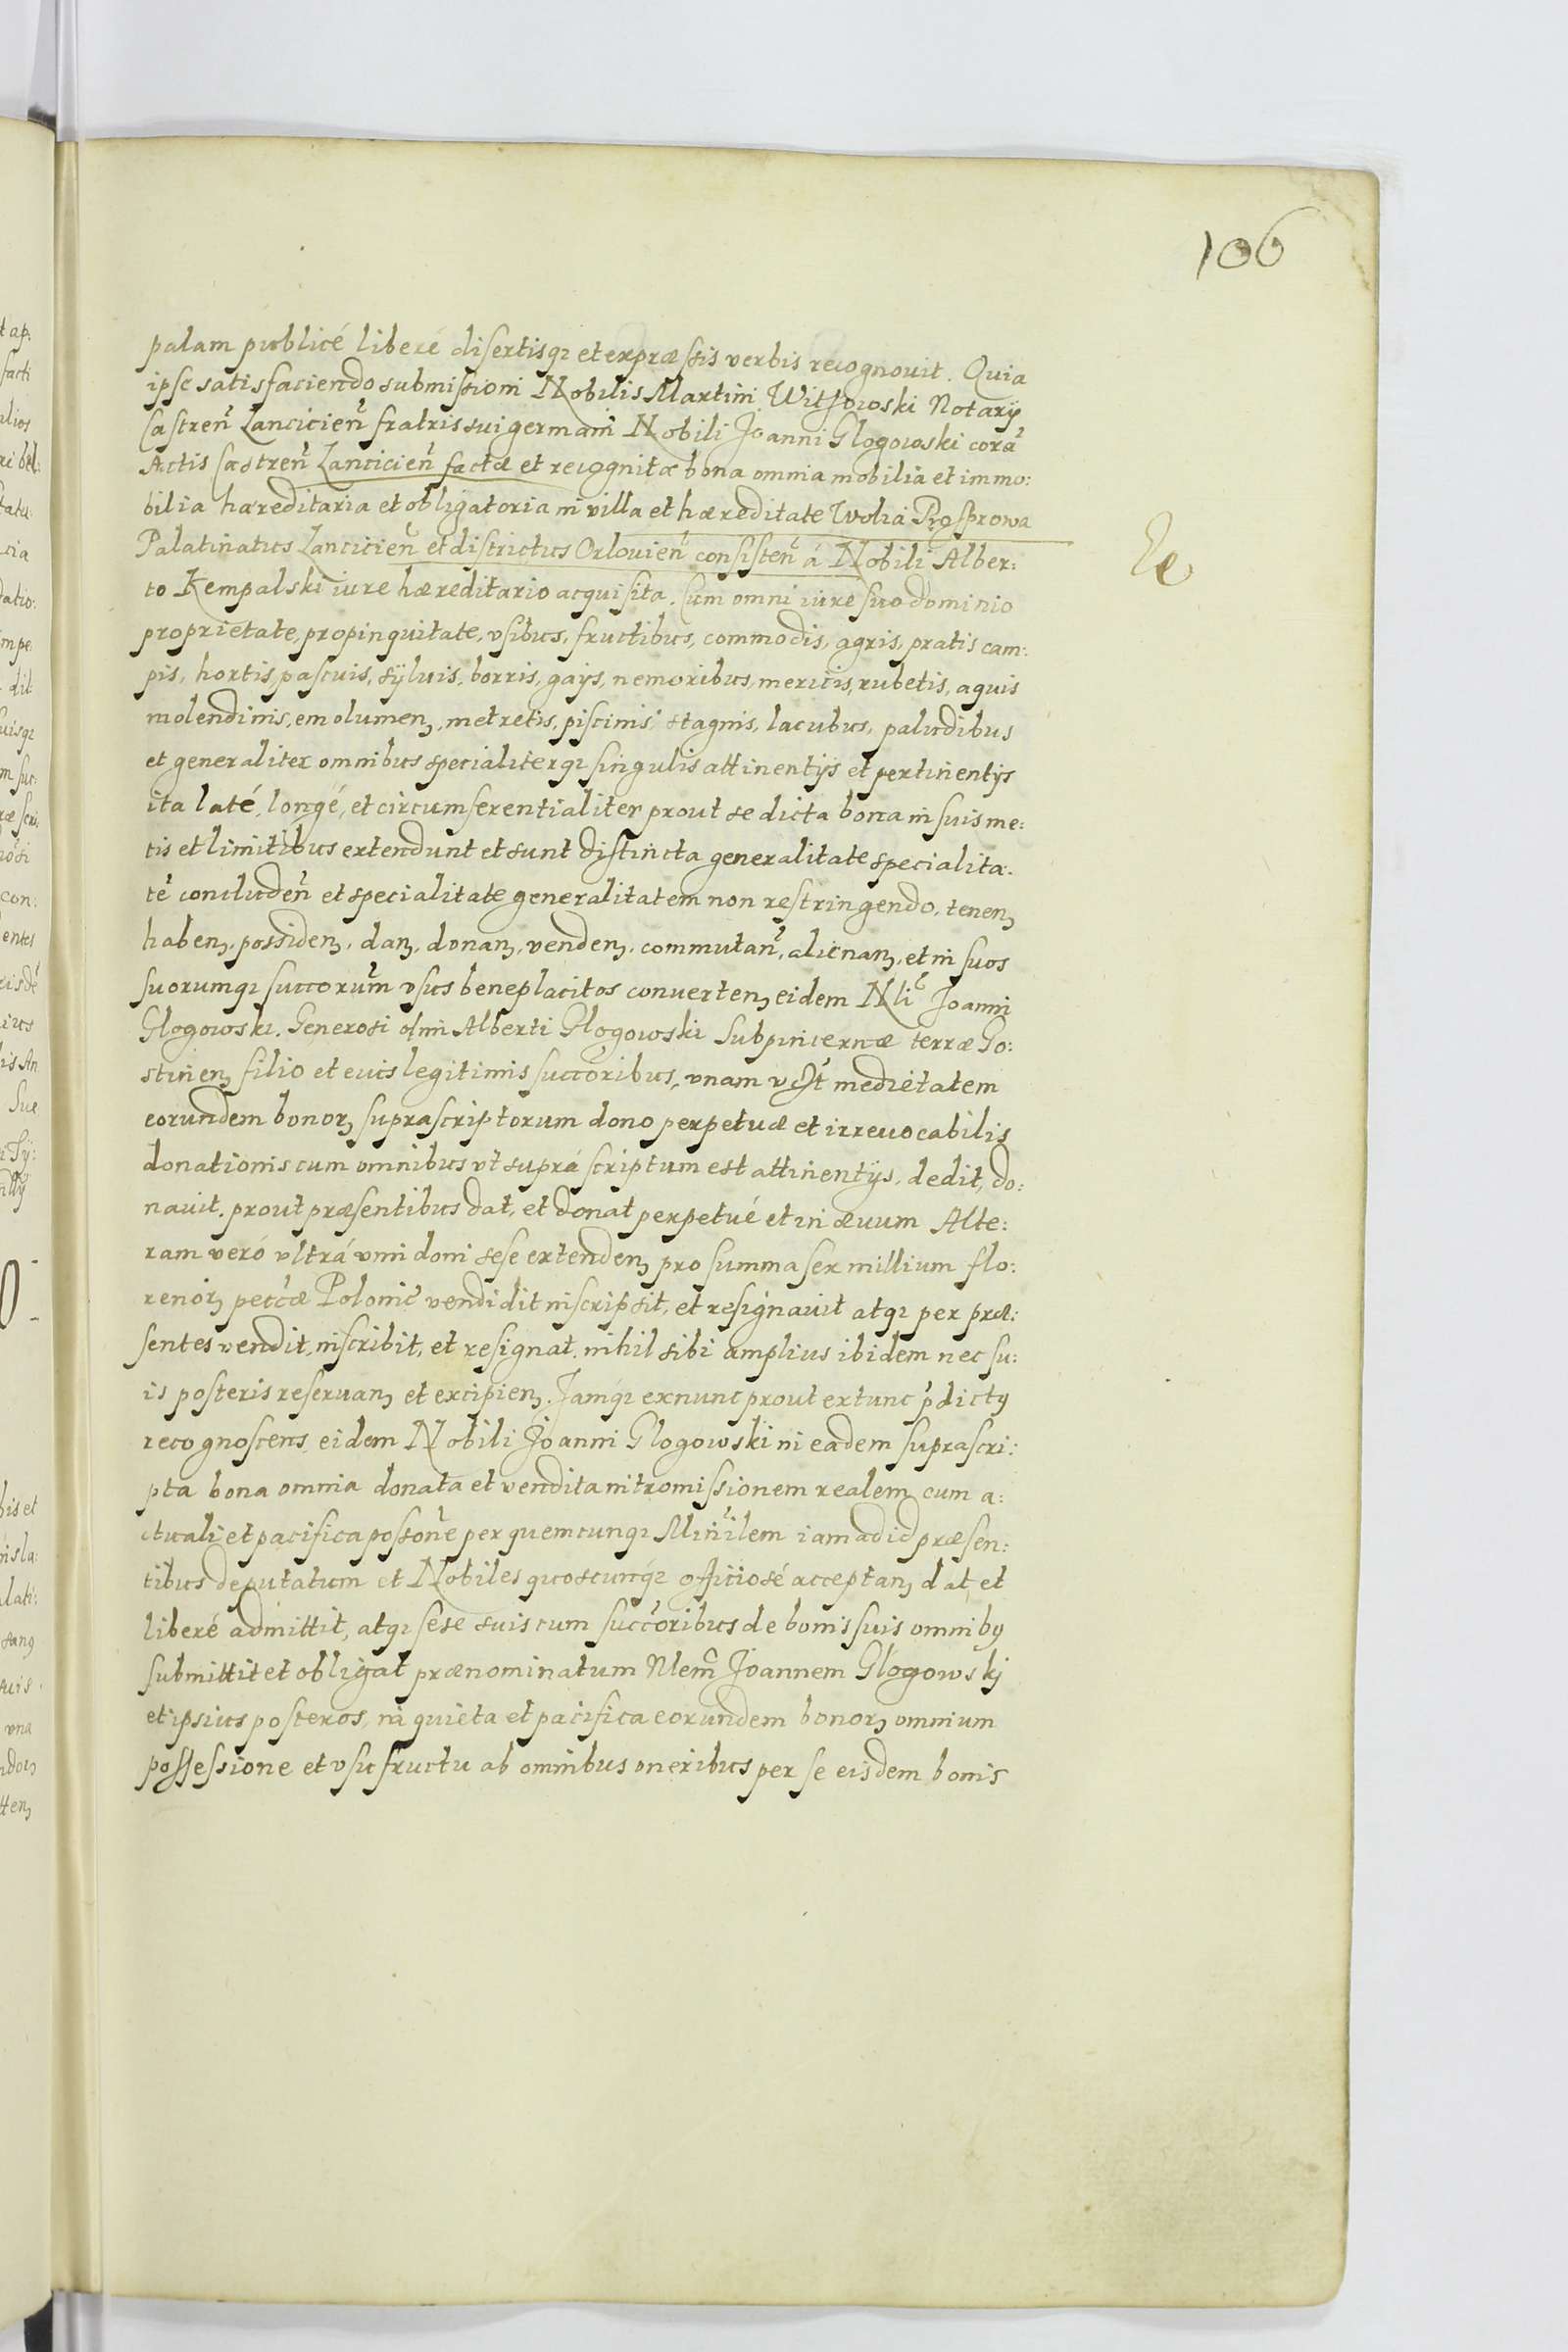 106
palam publicé liberé disertisq; et expræssis verbis recognouit. Quia
ipse satisfaciendo submissioni Nobilis Martini Witkowski Notarÿ
Castren̄ Lancicien̄ fratris sui germani Nobili Joanni Glogowski corā
Actis Castren̄ Lancicien̄ factæ et recognitæ bona omnia mobilia et immo:
bilia hæreditaria et obligatoria in villa et hæreditate Wolia Prosprowa
Palatinatus Lancicien̄ et districtus Orlouien̄ consisten̄ á Nobili Alber:
to Kempalski iure hæreditario acquisita. Cum omni iure suo dominio
proprietate, propinquitate, vsibus, fructibus, commodis, agris, pratis cam:
pis, hortis, pascuis, sÿluis, borris, gays, nemoribus, mericis, rubetis, aquis
molendinis, emolumenʒ, metretis, piscinis, stagnis, lacubus, paludibus
et generaliter omnibus specialiterq; singulis attinentÿs et pertinentÿs
ita laté, longé, et circumferentialiter prout se dicta bona in suis me:
tis et limitibus extendunt et sunt distincta generalitate specialita:
tē concluden̄ et specialitate generalitatem non restringendo, tenenʒ
habenʒ, possidenʒ, danʒ, donanʒ, vendenʒ, commutan̄, alienanʒ, et in suos
suorumq; succorūm vsus beneplacitos conuertenʒ eidem Nli̅ Joanni
Glogowski. Generosi olim Alberti Glogowski Subpincernæ terræ Go:
stinenʒ filio et eius legitimis succōribus, vnam medietatem
eorundem bonorʒ suprascriptorum dono perpetuæ et irreuocabilis
donationis cum omnibus vt suprá scriptum est attinentÿs, dedit, do:
nauit, prout præsentibus dat, et donat perpetué et in æuum Alte:
ram veró vltrá vim doni sese extendenʒ pro summa sex millium flo:
renorʒ peccǣ Polonic̄ vendidit inscripsit, et resignauit atq; per præ:
sentes vendit, inscribit, et resignat, nihil sibi amplius ibidem nec su:
is posteris reseruanʒ et excipienʒ. Jamq; exnunc prout extunc p̄dictꝰ
recognoscens, eidem Nobili Joanni Glogowski in eadem suprascri:
pta bona omnia donata et vendita intromissionem realem cum a:
ctuali et pacifica possone̅ per quemcunq; Minīlem iam ad id præsen:
tibus deputatum et Nobiles quoscunq; officiosé acceptanʒ dat, et
liberé admittit, atq; sese suis cum succōribus de bonis suis omnibꝰ
submittit et obligat prænominatum Nlem̄ Joannem Glogowskj
et ipsius posteros, in quieta et pacifica eorundem bonorʒ omnium
possessione et vsufructu ab omnibus oneribus per se eisdem bonis